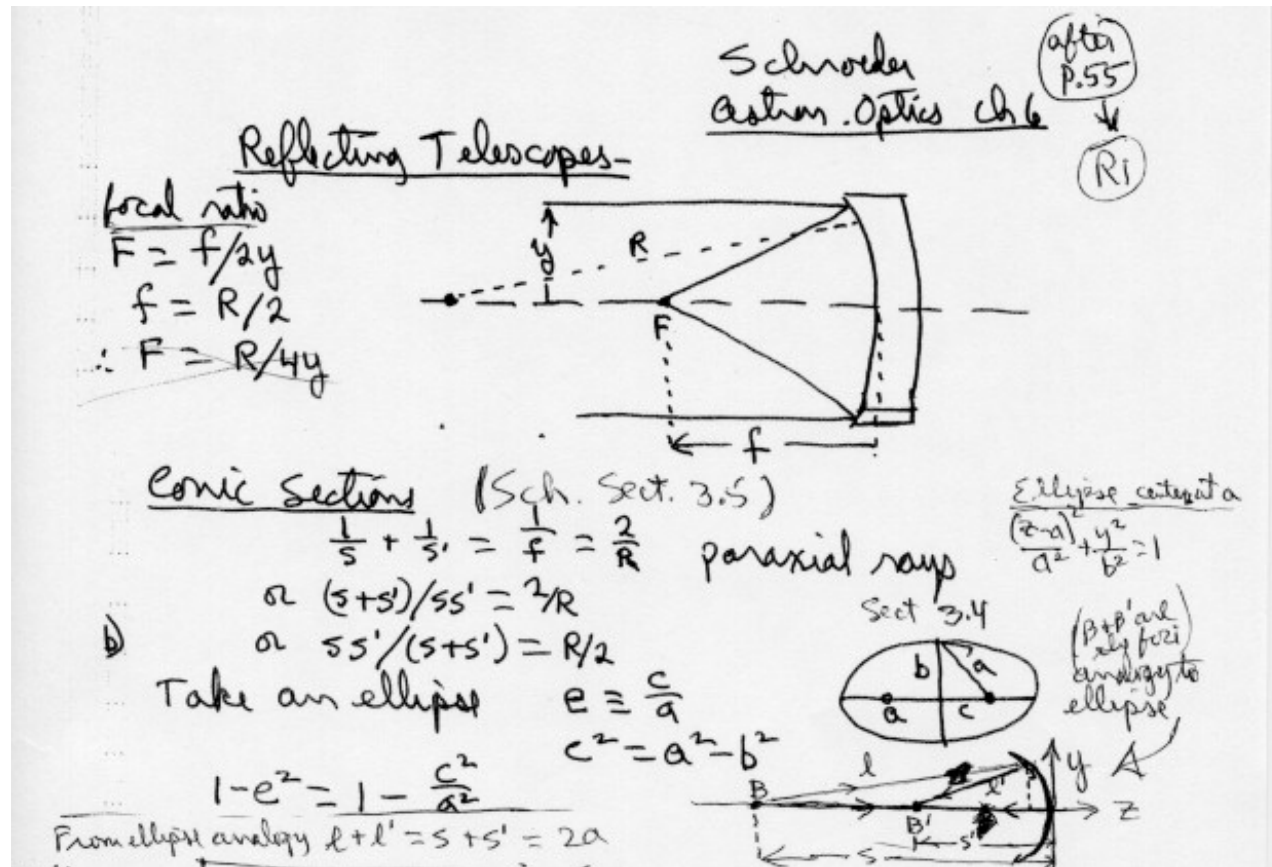 Schroeder
Astron. Optics ch 6
after
P.55
R1
Reflecting Telescopes-
focal ratio
F = f/2y
f = R/2
∴ F = R/4y
y
R
F
f
Conic Sections (Sch. Sect. 3.5)
1/s + 1/s' = 1/f = 2/R paraxial rays
Sect 3.4
or (s+s')/ss' = 2/R
b) or ss'/(s+s') = R/2
Take an ellipse e ≡ c/a
c² = a² - b²
1-e² = 1 - c²/a²
From ellipse analogy l+l' = s+s' = 2a
Ellipse center at a
(z-a)²/a² + y²/b² = 1
b a
a c
(B+B' are
foci
analogy to
ellipse
y
l
l'
B
B'
z
s'
s